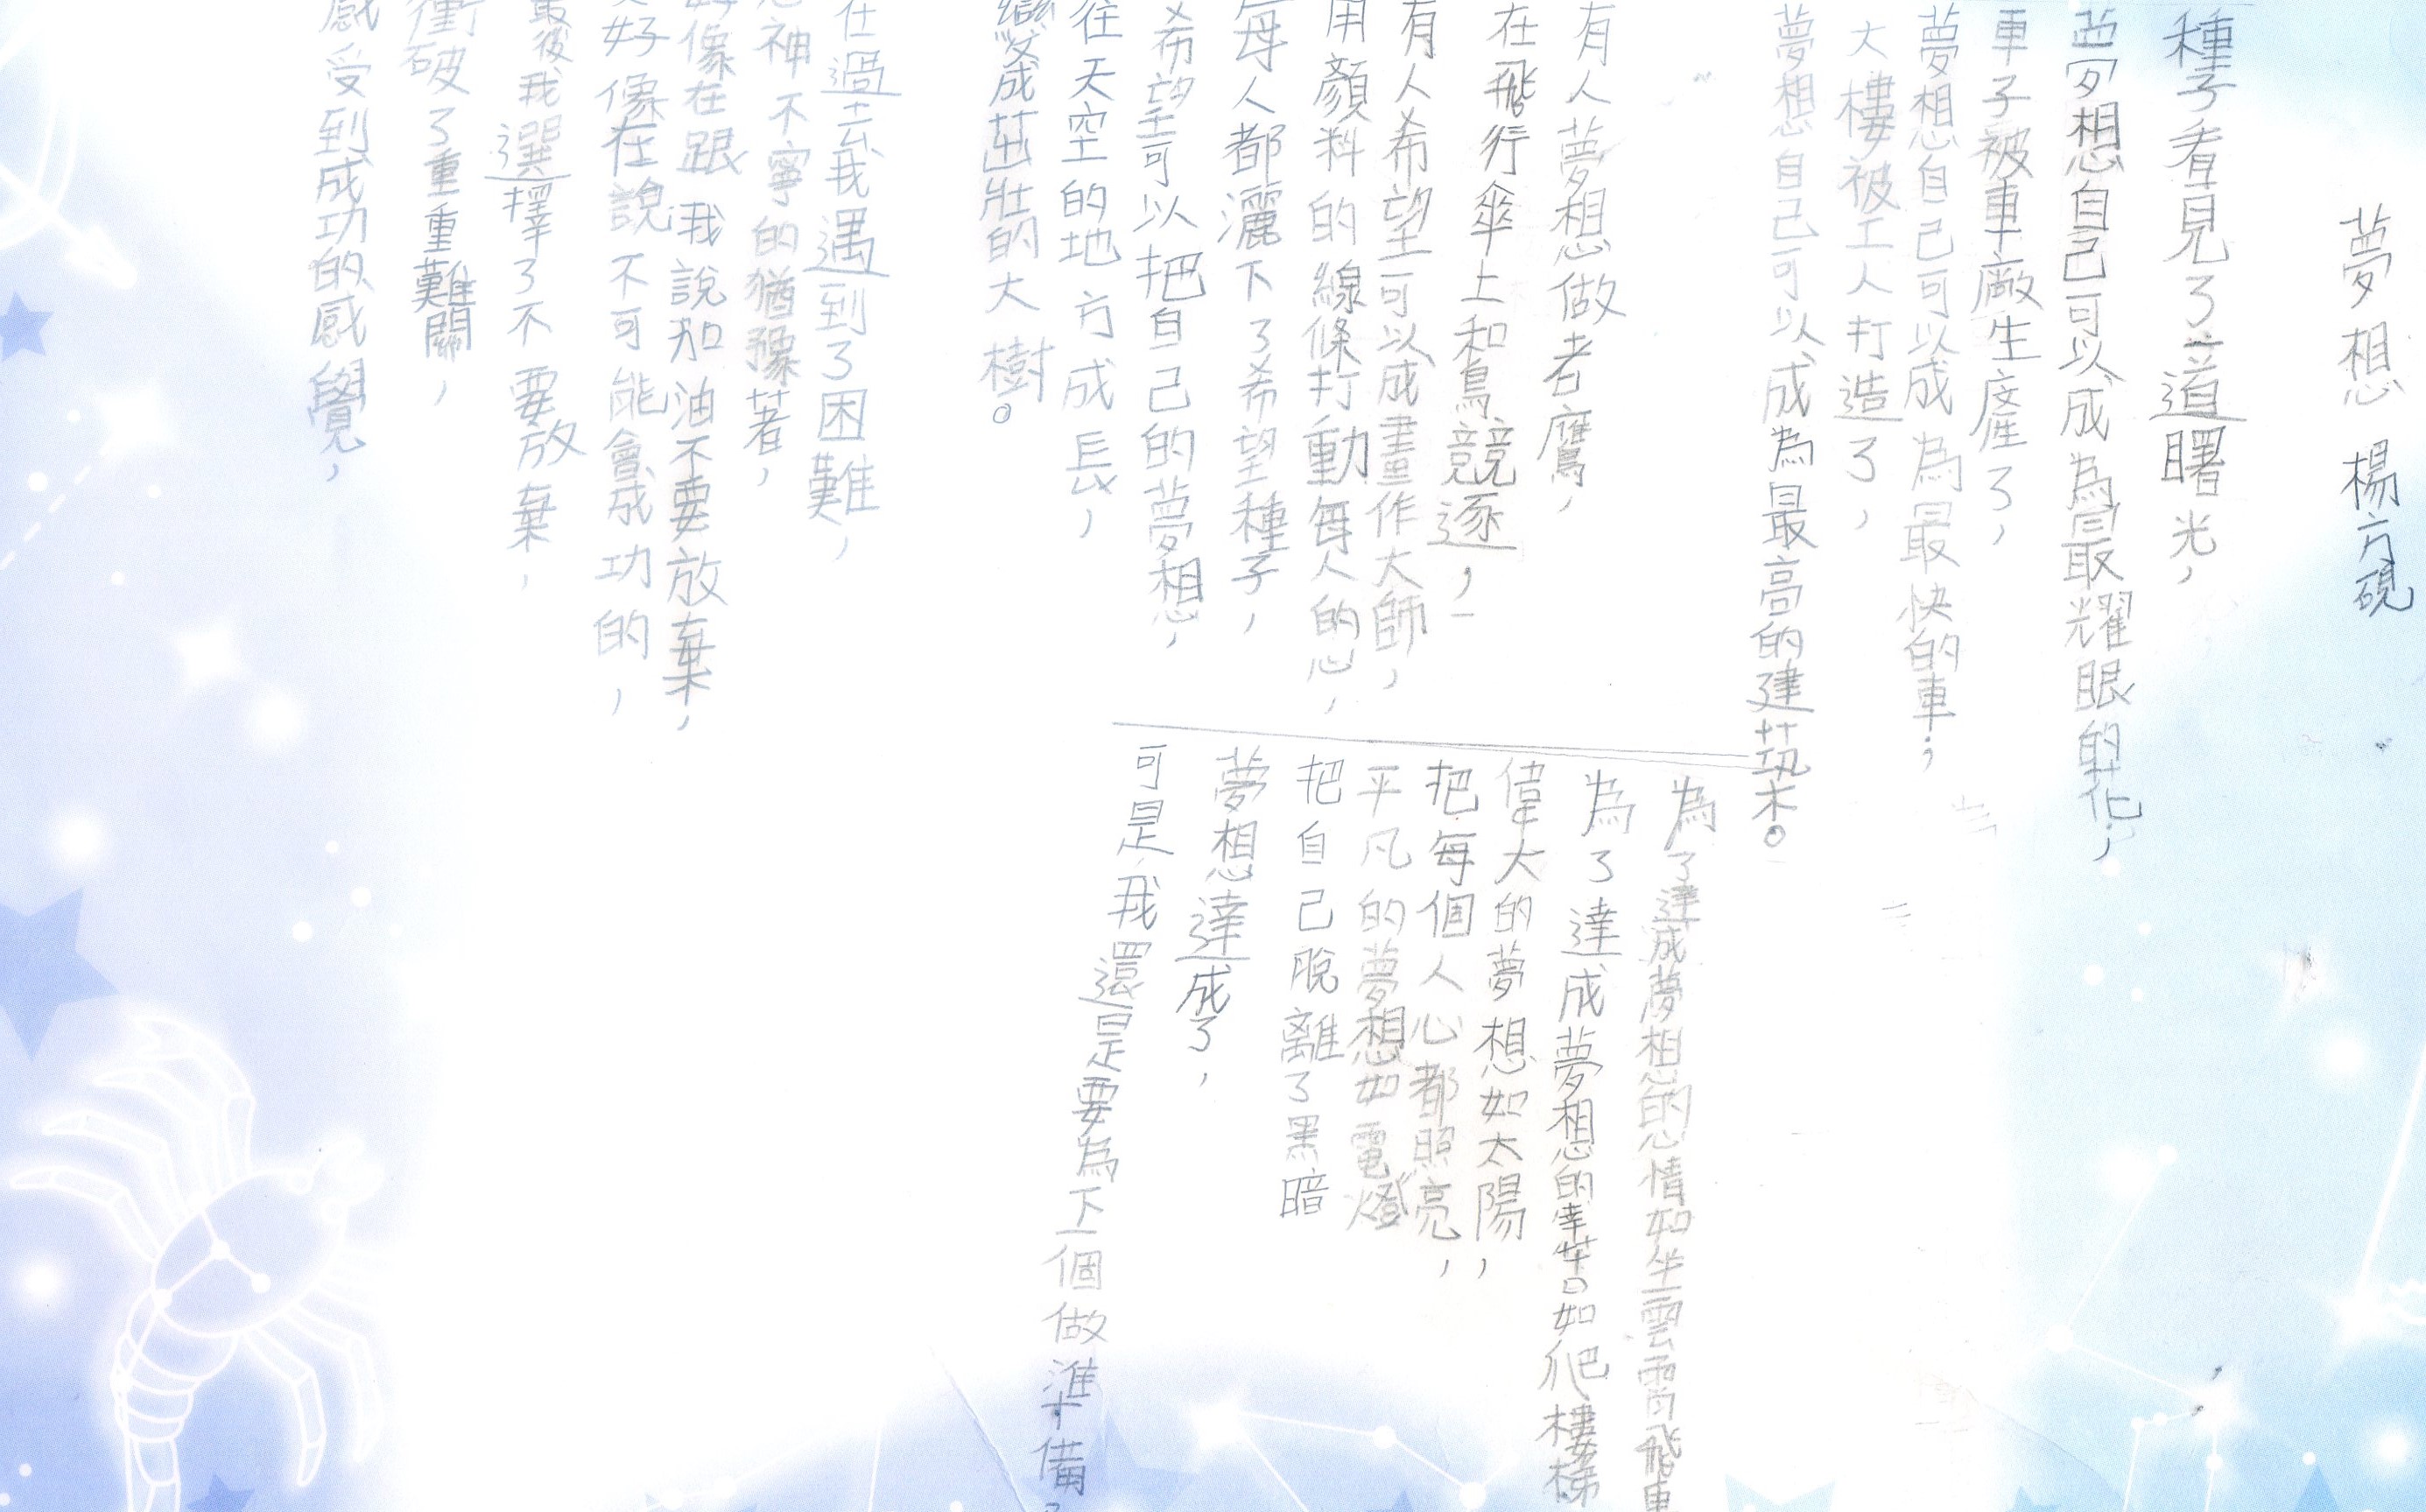 夢想 楊方硯
種子看見了一道曙光，
夢想自己可以成為最耀眼的花；
車子被車廠生產了，
夢想自己可以成為最快的車；
大樓被工人打造了，
夢想自己可以成為最高的建築。
有人夢想做老鷹，
在飛行傘上和鳥競逐，
有人希望可以成畫作大師，
用顏料的線條打動每人的心，
每人都灑下了希望種子，
希望可以把自己的夢想，
往天空的地方成長，
變成茁壯的大樹。
在過去我遇到了困難，
神不寧的猶豫著，
好像在跟我說加油不要放棄，
又好像在說不可能會成功的，
最後我選擇了不要放棄，
衝破了重重難關，
感受到成功的感覺，
為了達成夢想的心情如坐雲霄飛車
為了達成夢想的辛苦如爬樓梯
偉大的夢想如太陽，
把每個人心都照亮，
平凡的夢想如電燈
把自己脫離了黑暗
夢想達成了，
可是我還是要為下一個做準備